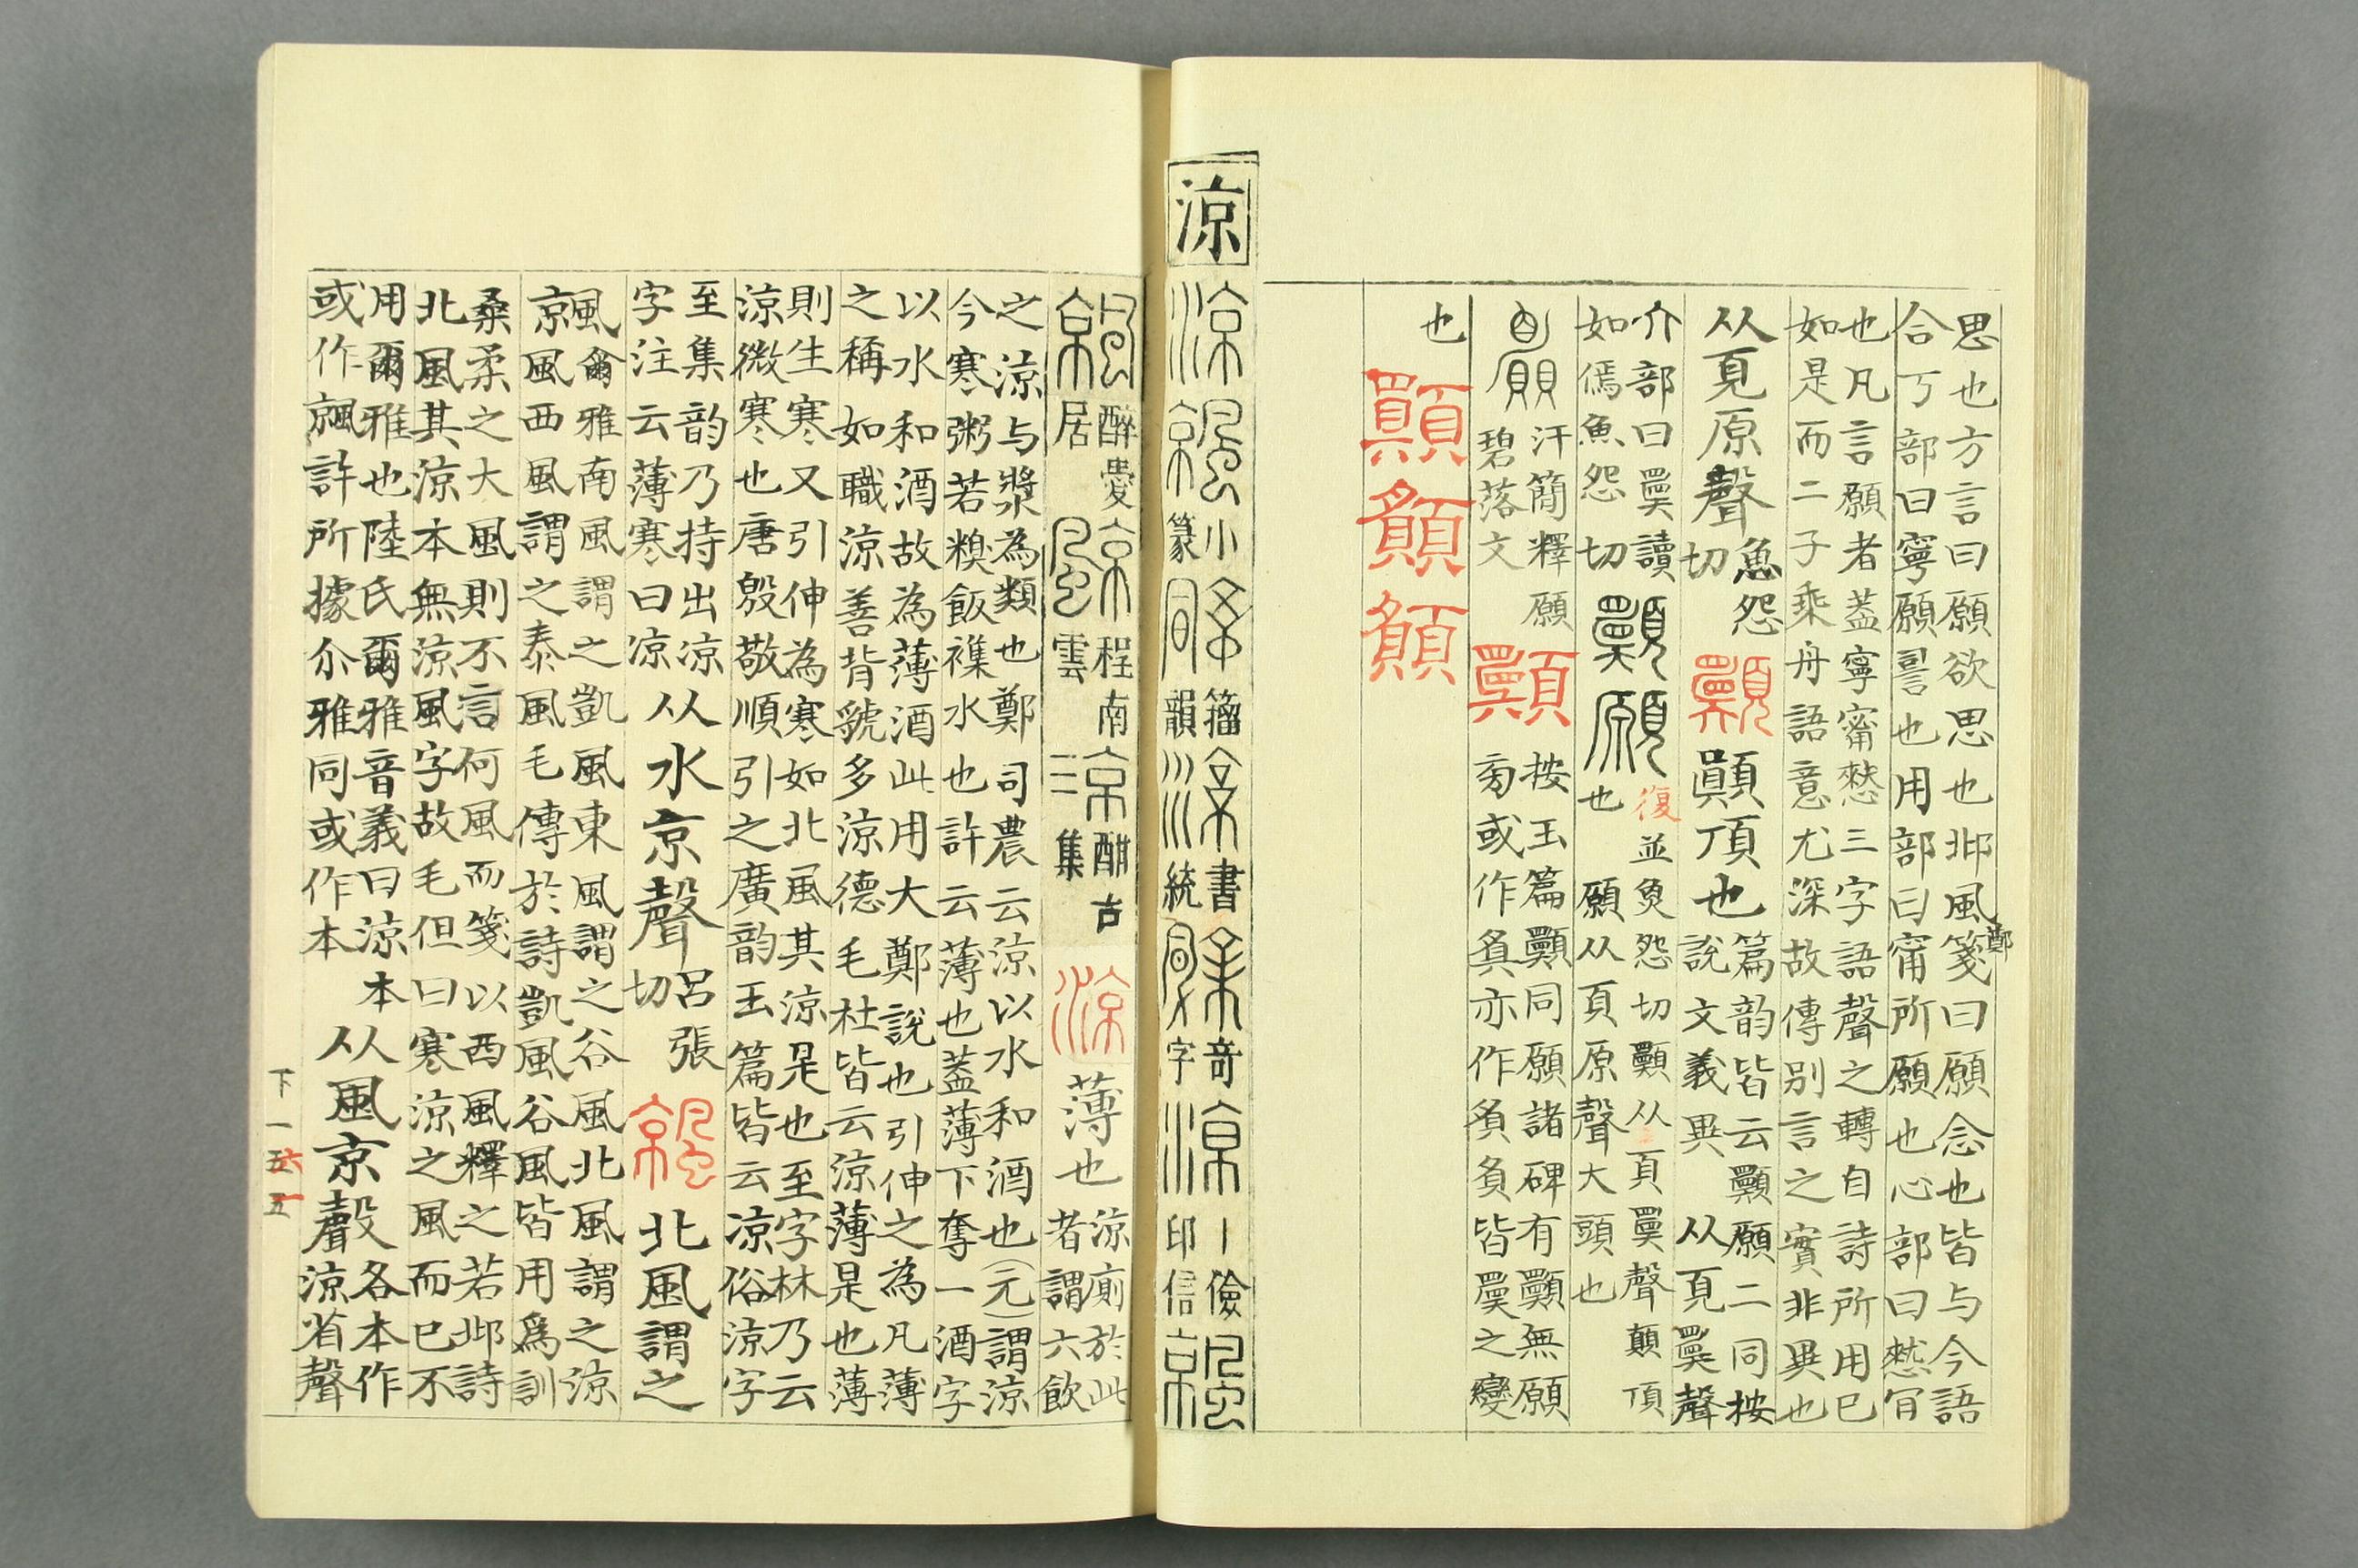 思也方言曰願欲思也邶風鄭箋曰願念也皆与今語
合丂部曰寧願䛐也用部曰甯所願也心部曰憖肎
也凡言願者葢寧甯憖三字語聲之轉自詩所用巳
如是而二子乘舟語意尤深故傳别言之實非異也
从頁原聲
魚怨
切
頂也
篇韵皆云願二同按
說文義異
从頁聲
夰部曰讀
如傿魚怨切
復並魚怨切从頁聲顛頂
也
願从頁原聲大頭也
汗簡釋願
碧落文
按玉篇同願諸碑有無願
或作亦作皆之變
也
涼
涼
小
篆
籀
韻
書
統
奇
字
丨儉
印信
醉愛
居
程南
雲
酣古
集
涼
薄也
涼廁於此
者謂六飲
之涼与漿為類也鄭司農云涼以水和酒也(元)謂涼
今寒粥若糗飯襍水也許云薄也葢薄下奪一酒字
以水和酒故為薄酒此用大鄭說也引伸之為凡薄
之稱如職涼善背虢多涼德毛杜皆云涼薄是也薄
則生寒又引伸為寒如北風其涼是也至字林乃云
涼微寒也唐殷敬順引之廣韵玉篇皆云凉俗涼字
至集韵乃持出凉
字注云薄寒曰凉
从水京聲
呂張
切
北風謂之
風爾雅南風謂之凱風東風謂之谷風北風謂之涼
京風西風謂之泰風毛傳於詩凱風谷風皆用爲訓
桑柔之大風則不言何風而箋以西風釋之若邶詩
北風其涼本無涼風字故毛但曰寒涼之風而巳不
用爾雅也陸氏爾雅音義曰涼本
或作飆許所據尒雅同或作本
从風京聲
各本作
涼省聲
下一五六一五